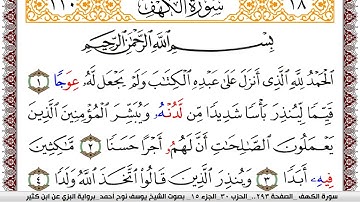 ١٨ سُورَةُ الْكَهْفِ ١١٠
بِسْمِ اللَّهِ الرَّحْمَٰنِ الرَّحِيمِ
الْحَمْدُ لِلَّهِ الَّذِي أَنزَلَ عَلَىٰ عَبْدِهِ الْكِتَابَ وَلَمْ يَجْعَل لَّهُ عِوَجًا ١
قَيِّمًا لِّيُنذِرَ بَأْسًا شَدِيدًا مِّن لَّدُنْهُ وَيُبَشِّرَ الْمُؤْمِنِينَ الَّذِينَ
يَعْمَلُونَ الصَّالِحَاتِ أَنَّ لَهُمُ أَجْرًا حَسَنًا ٢ مَّاكِثِينَ
فِيهِ أَبَدًا ٣ وَيُنذِرَ الَّذِينَ قَالُوا اتَّخَذَ اللَّهُ وَلَدًا ٤
سورة الكهف _الصفحة ٢٩٣_ الحزب ٣٠_ الجزء ١٥ _ بصوت الشيخ يوسف نوح احمد_ برواية البزي عن ابن كثير